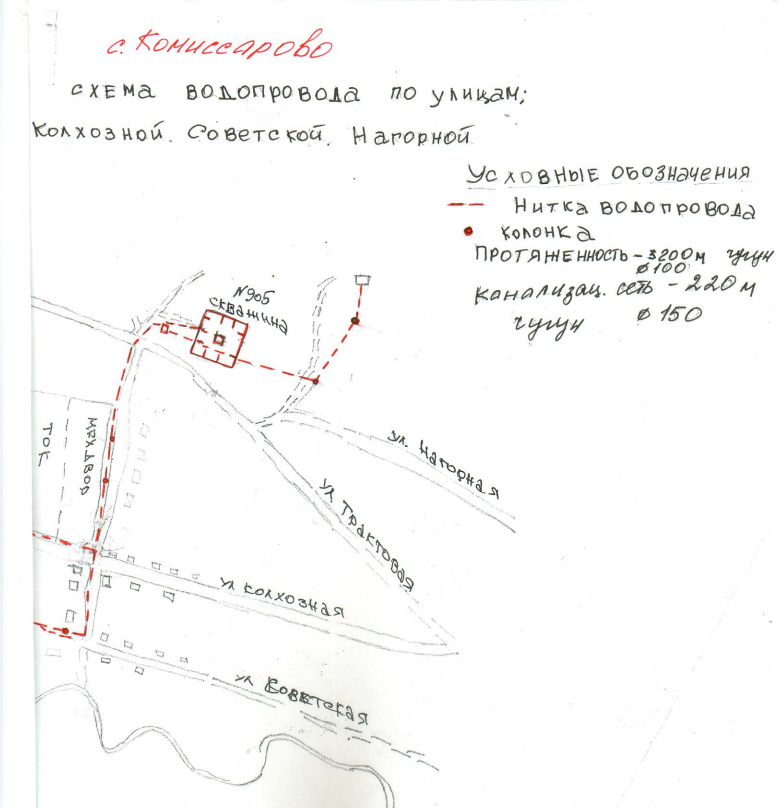 с. Комиссарово
схема водопровода по улицам;
Колхозной. Советской. Нагорной
Условные обозначения
Нитка водопровода
колонка
Протяженность – 3200м чугун
ø100
канализац. сеть – 220м
чугун ø 150
№905
скважина
ул. Нагорная
ул Трактовая
мехдвор
ток
ул колхозная
ул Советская